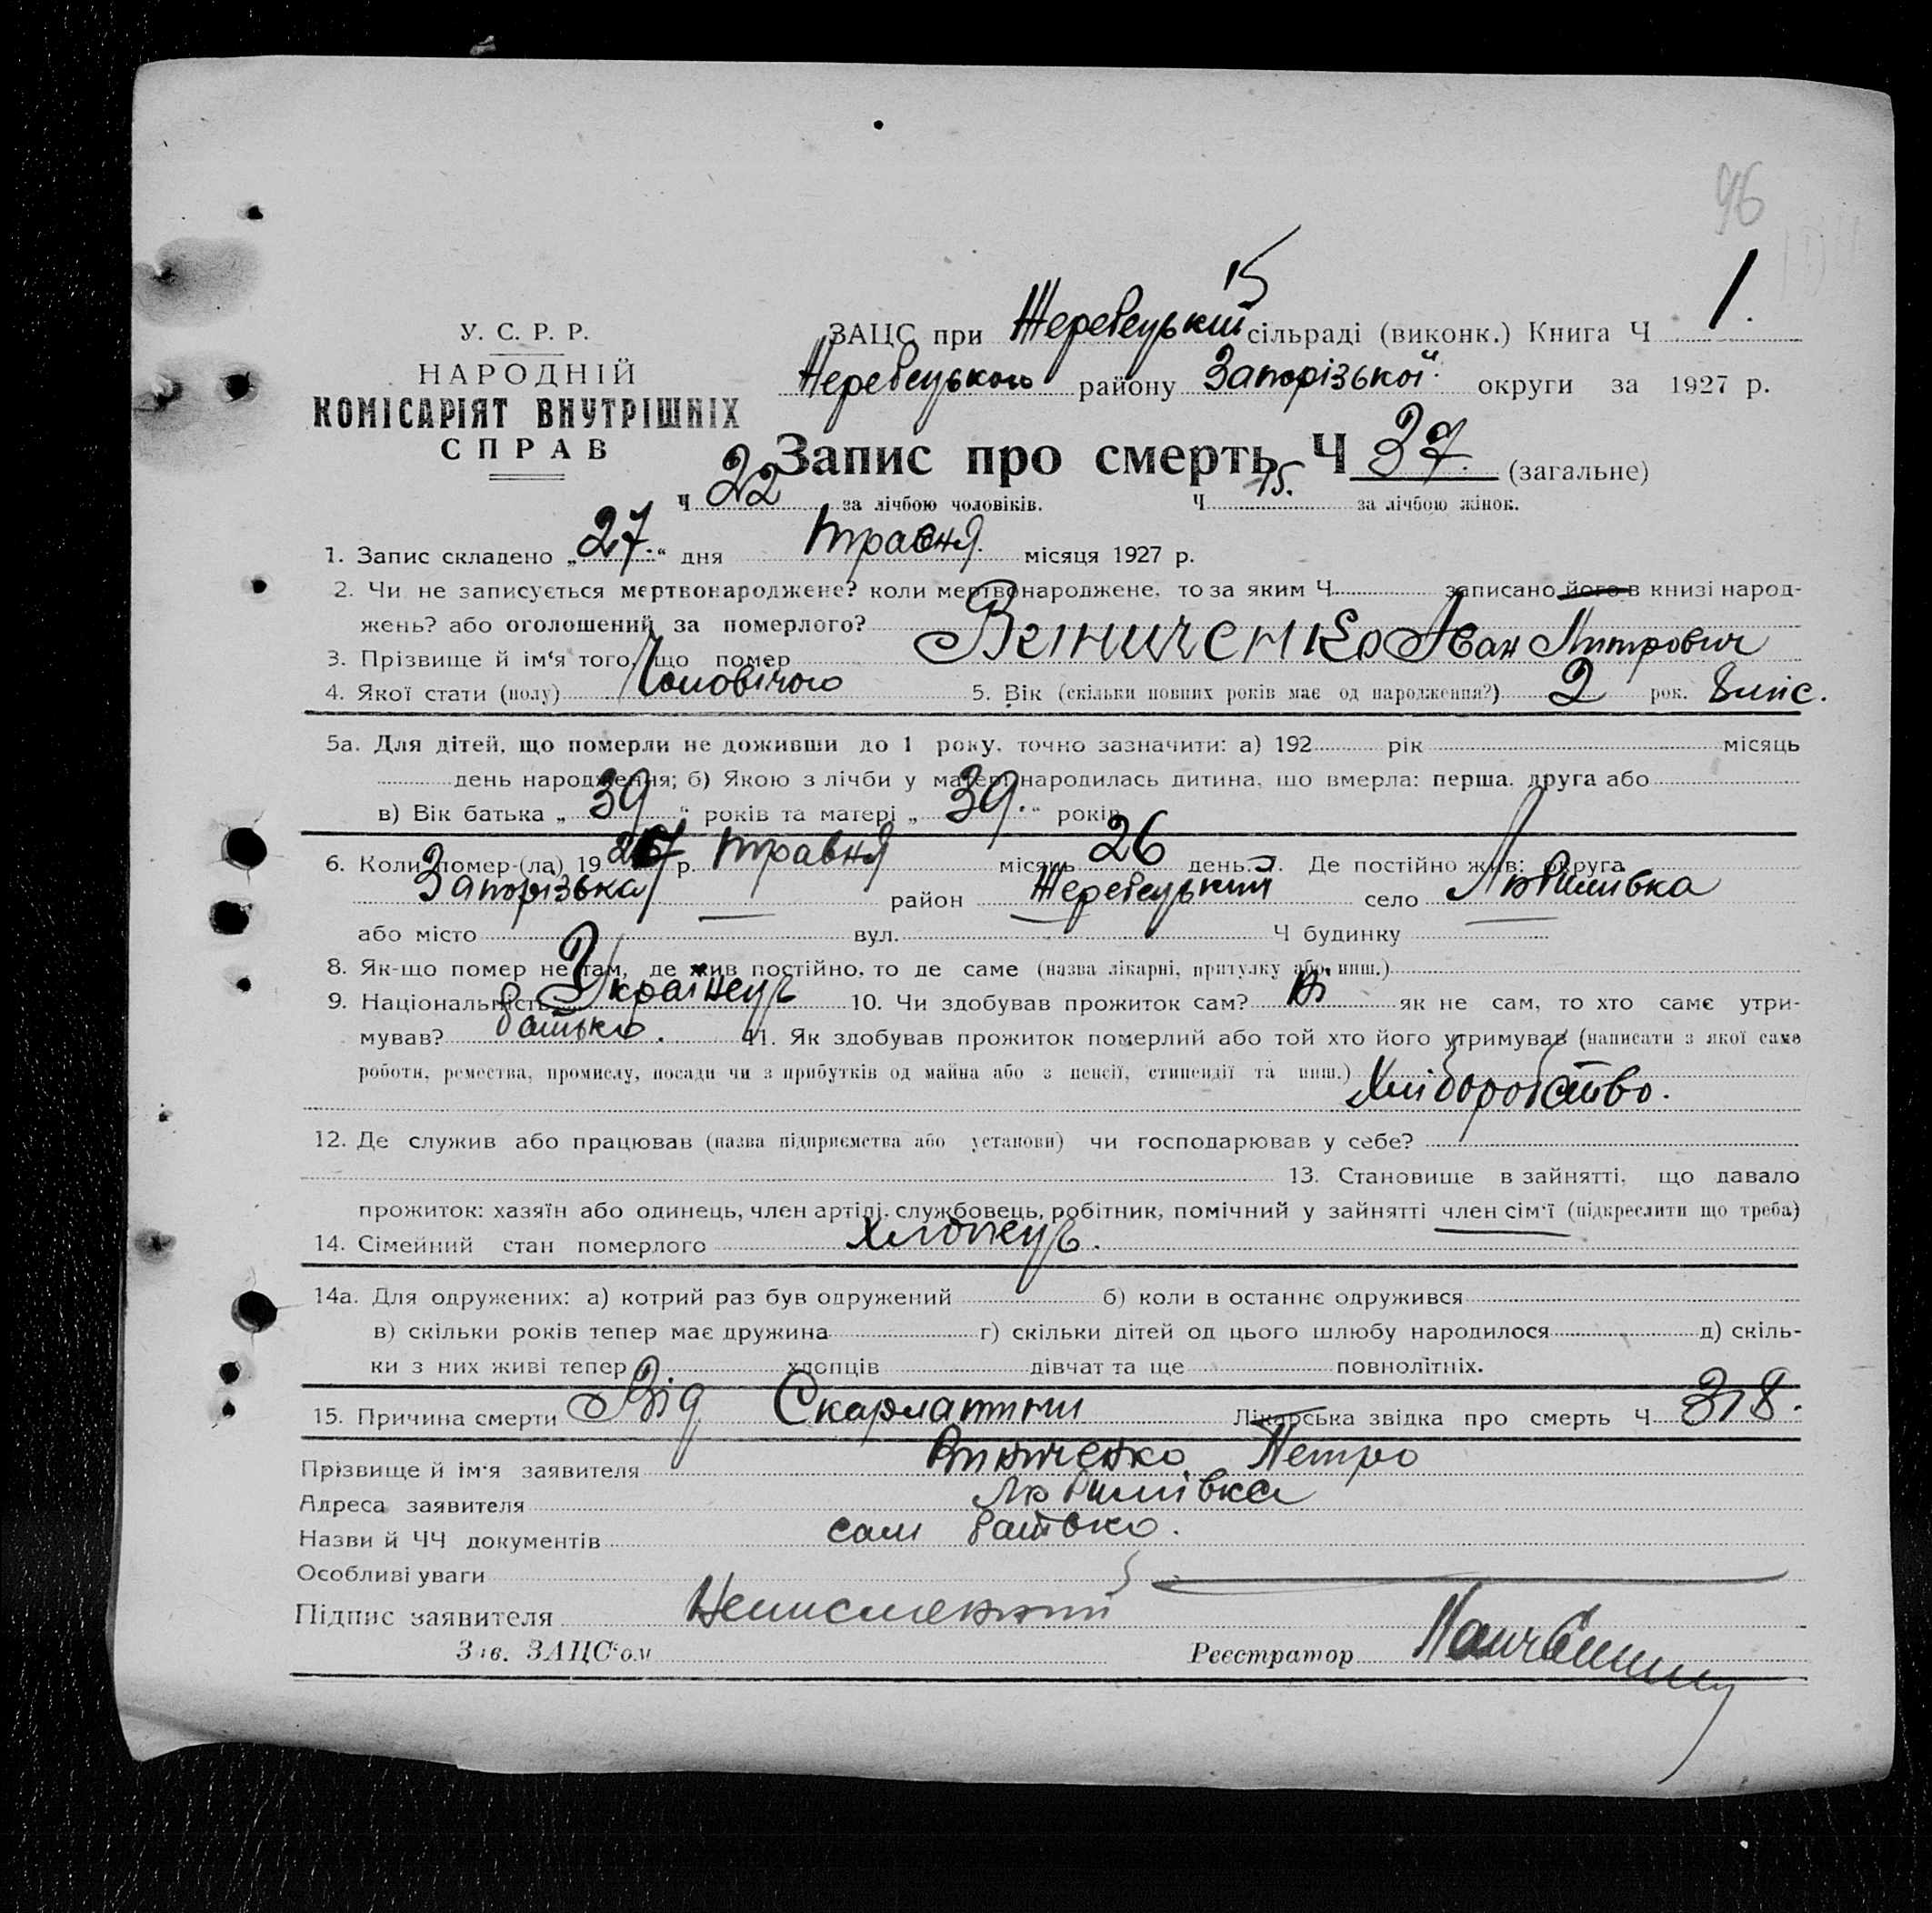 96
15
У. С. Р. Р.
НАРОДНІЙ
КОМІСАРІЯТ ВНУТРІШНІХ
СПРАВ
ЗАЦС при Жеребецький сільраді (виконк.) Книга Ч 1.
Жеребецького району Запорізької округи за 1927 р.
Запис про смерть Ч 37. (загальне)
Ч 22 за лічбою чоловіків. Ч 15. за лічбою жінок.
1. Запис складено „27.“ дня травня. місяця 1927 р.
2. Чи не записується мертвонароджене? коли мертвонароджене, то за яким Ч записано його в книзі народ-
жень? або оголошений за померлого?
3. Прізвище й ім‘я того, що помер Вініченко Іван Митрович
4. Якої стати (полу) Чоловічого 5. Вік (скільки повних років має од народження?) 2 рок. 8 міс.
5а. Для дітей, що померли не доживши до 1 року, точно зазначити: а) 192 рік місяць
день народження; б) Якою з лічби у матері народилась дитина, що вмерла: перша, друга або
в) Вік батька „39“ років та матері „39.“ років
6. Коли помер-(ла) 1927 р. травня місяць 26 день. 7. Де постійно жив: округа
Запорізька район Жеребецький село Любимівка
або місто вул. Ч будинку
8. Як-що помер не там, де жив постійно, то де саме (назва лікарні, притулку або инш.)
9. Національність Українець 10. Чи здобував прожиток сам? Ні як не сам, то хто саме утри-
мував? батько. 11. Як здобував прожиток померлий або той хто його утримував (написати з якої саме
роботи, ремества, промислу, посади чи з прибутків од майна або з пенсії, стипендії та инш.)
Хліборобство.
12. Де служив або працював (назва підприємства або установи) чи господарював у себе?
13. Становище в зайнятті, що давало
прожиток: хазяїн або одинець, член артілі, службовець, робітник, помічний у зайнятті член сім‘ї (підкреслити що треба)
14. Сімейний стан померлого Хлопець.
14а. Для одружених: а) котрий раз був одружений б) коли в останнє одружився
в) скільки років тепер має дружина г) скільки дітей од цього шлюбу народилося д) скіль-
ки з них живі тепер хлопців дівчат та ще повнолітніх.
15. Причина смерти Від Скарлатини Лікарська звідка про смерть Ч 318.
Прізвище й ім‘я заявителя Вініченко Петро
Адреса заявителя Любимівка
Назви й ЧЧ документів сам батько.
Особливі уваги
Підпис заявителя Неписменний
Зав. ЗАЦС‘ом Реєстратор